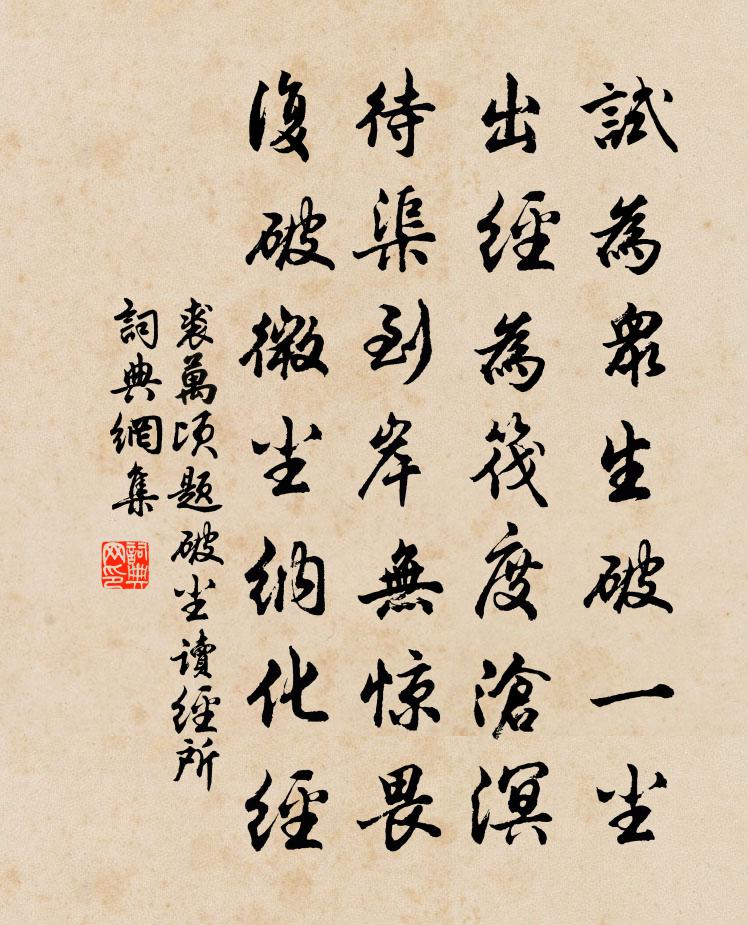 試為眾生破一尘
出經為筏度滄溟
待渠到岸無惊畏
復破微尘納化經
裘萬頃題破尘讀經所
詞典網集
詞典网印